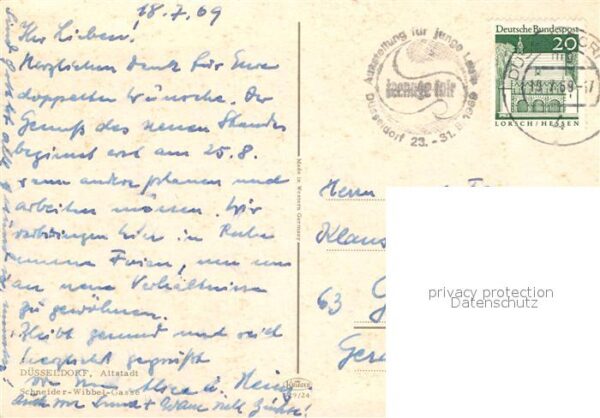 18.7.69
Ihr Lieben!
Herzlichen Dank für Eure
doppelten Wünsche. Der
Genuß des neuen Standes
beginnt erst am 25.8.
wenn andere planen und
arbeiten müssen. Wir
verbringen hier in Ruhe
unsere Ferien, um uns
an neue Verhältnisse
zu gewöhnen.
Bleibt gesund und seid
herzlichst gegrüßt
von und Heinz
auch von
DÜSSELDORF, Altstadt
Schneider-Wibbel-Gasse
Made in Western Germany
Krüger
Ausstellung für junge Leute
teenage fair
Düsseldorf 23. - 31. 8. 1969
Deutsche Bundespost
20
LORSCH / HESSEN
Herrn
Klaus
63 G
privacy protection
Datenschutz